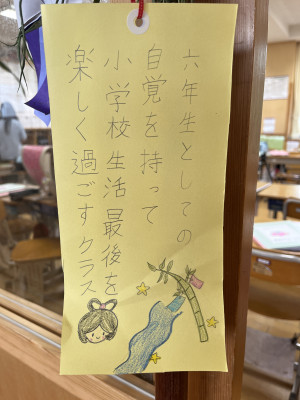 六年生としての
自覚を持って
小学校生活最後を
楽しく過ごすクラス